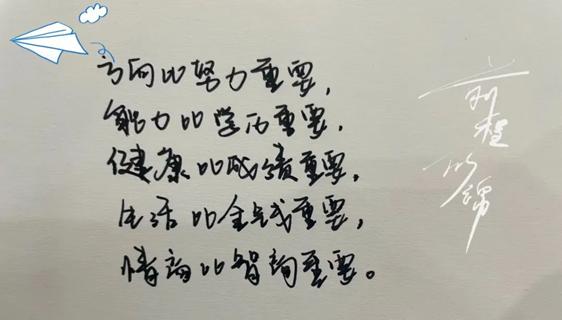 方向比努力重要，
能力比学历重要，
健康比成绩重要，
生活比金钱重要，
情商比智商重要。
前程
似锦